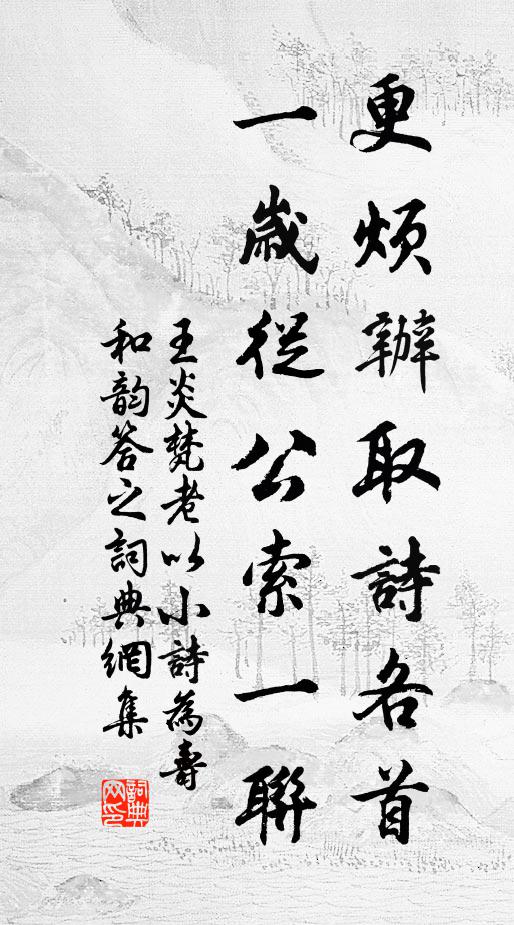 更煩辦取詩各首
一歲從公索一聯
王炎梵老以小詩為壽
和韵答之詞典網集
詞典
网印